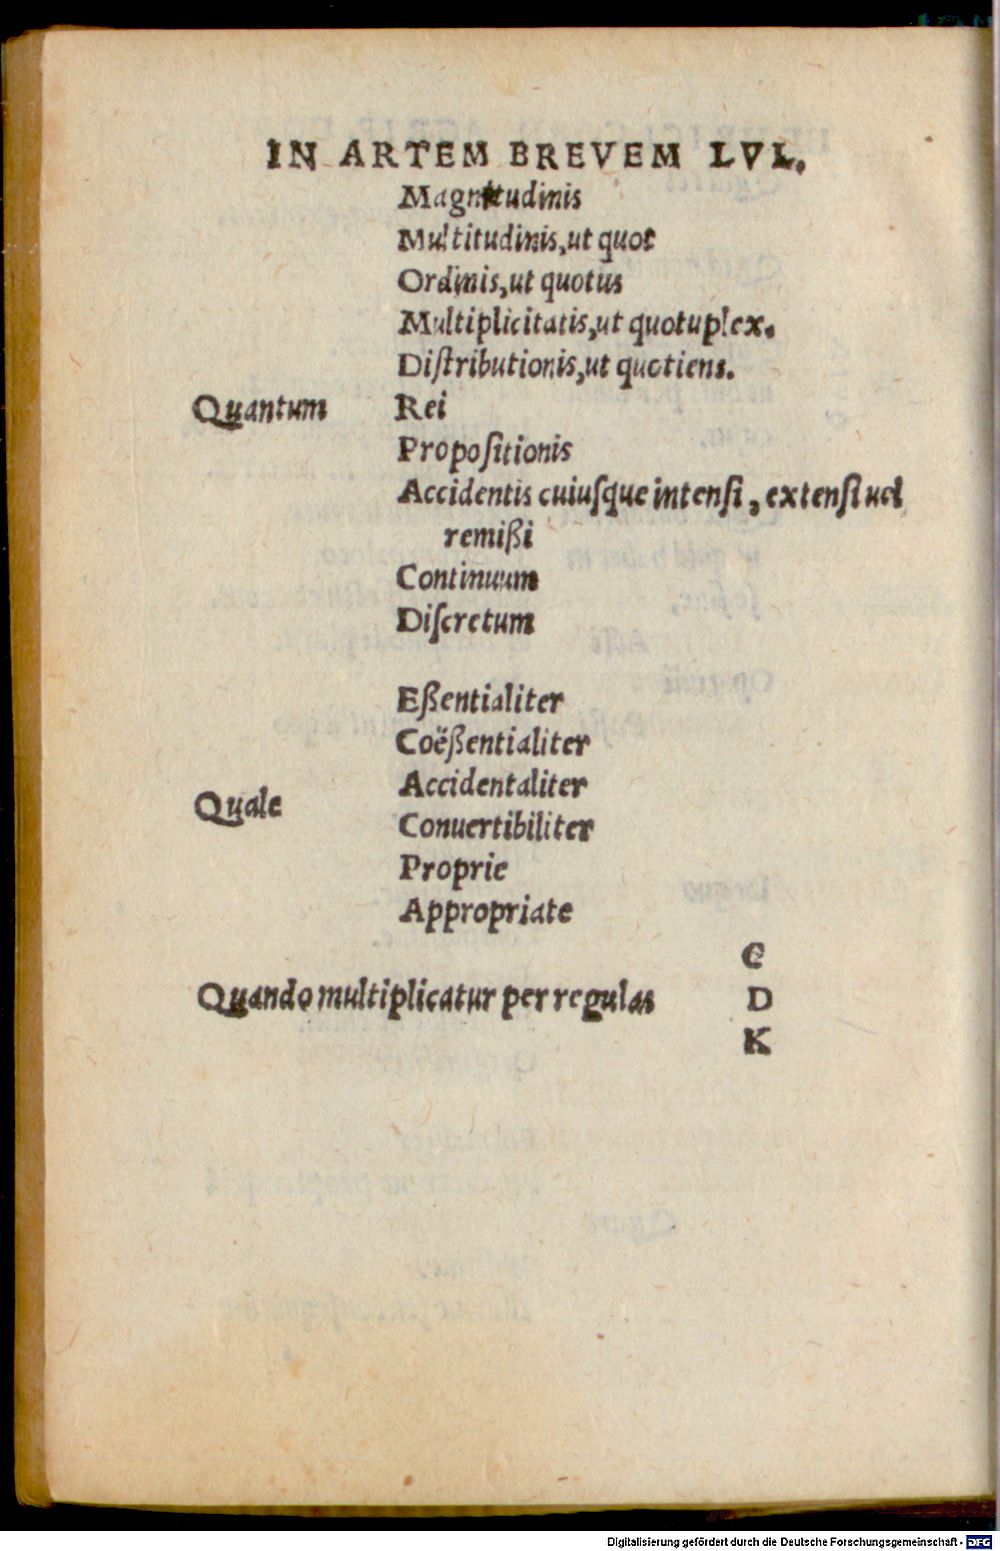 IN ARTEM BREVEM LVL.
Magnitudinis
Multitudinis, ut quot
Ordinis, ut quotus
Multiplicitatis, ut quotuplex.
Diſtributionis, ut quotiens.
Quantum Rei
Propoſitionis
Accidentis cuiuſque intenſi, extenſi uel
remißi
Continuum
Diſcretum
Eßentialiter
Coëßentialiter
Accidentaliter
Quale
Conuertibiliter
Proprie
Appropriate
C
Quando multiplicatur per regulas D
K
Digitalisierung gefördert durch die Deutsche Forschungsgemeinschaft - DFG